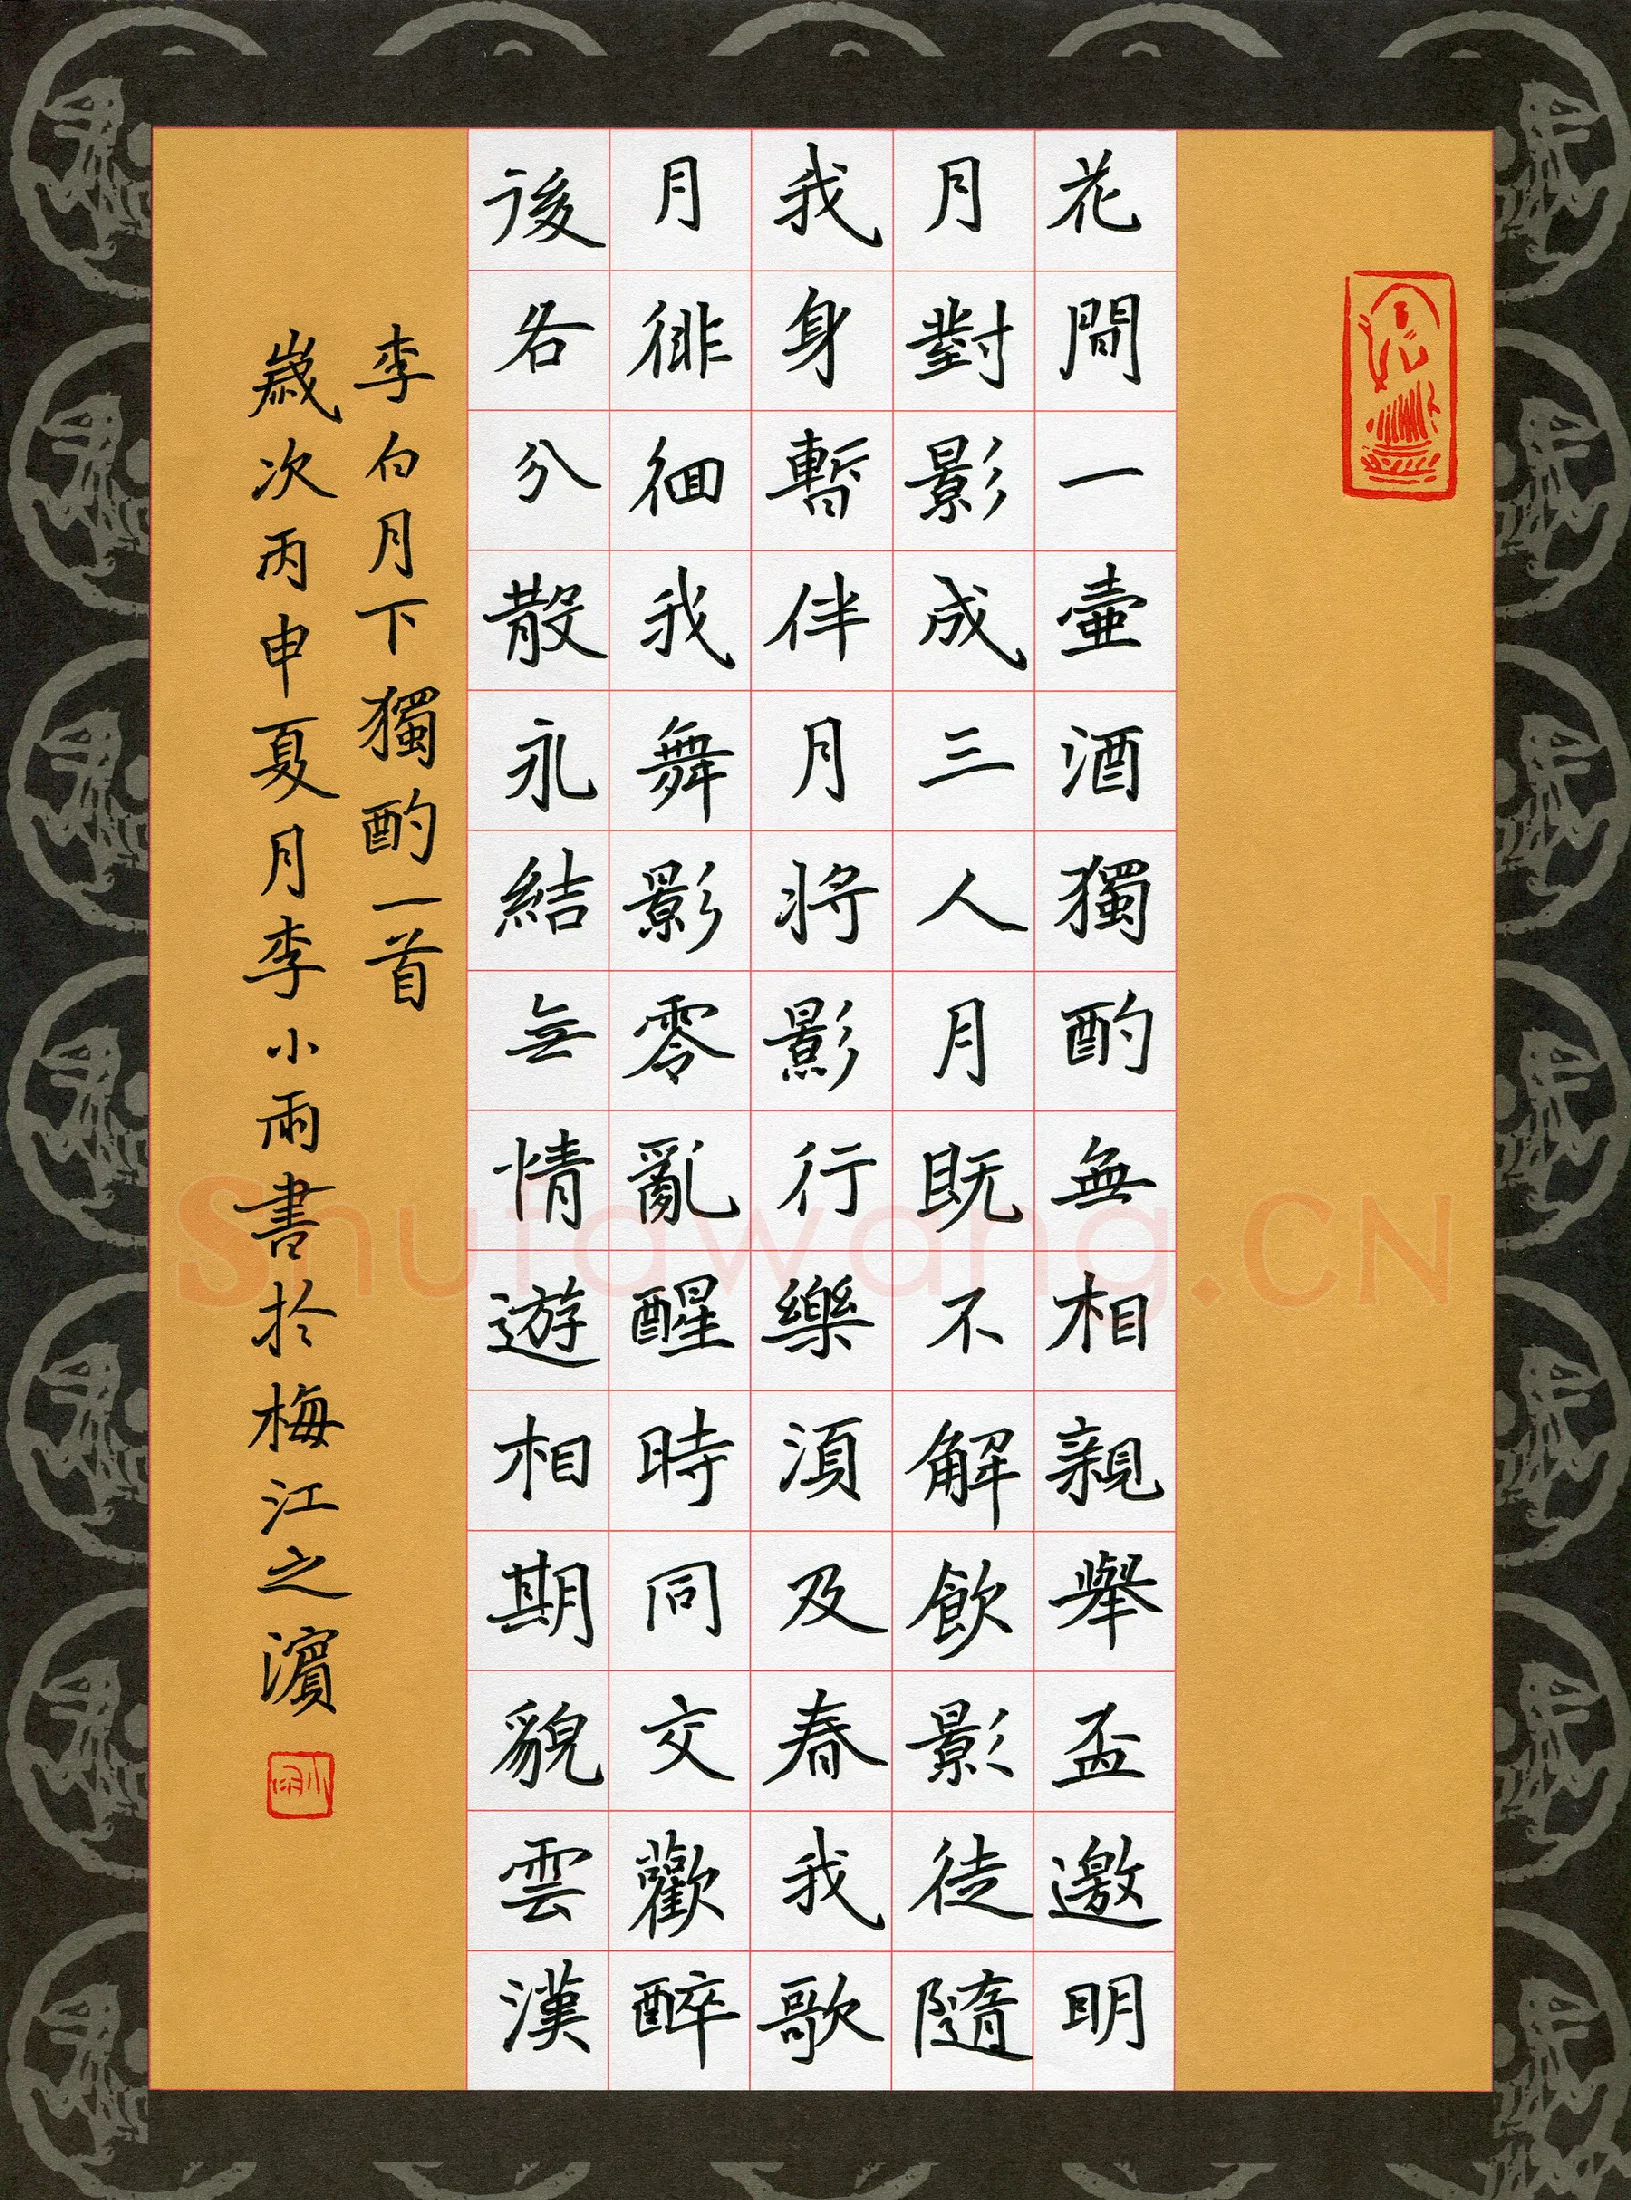 花間一壺酒獨酌無相親舉盃邀明
月對影成三人月既不解飲影徒隨
我身暫伴月將影行樂須及春我歌
月徘徊我舞影零亂醒時同交歡醉
後各分散永結無情遊相期貌雲漢
李白月下獨酌一首
歲次丙申夏月李小雨書於梅江之濱
Shufawang.CN